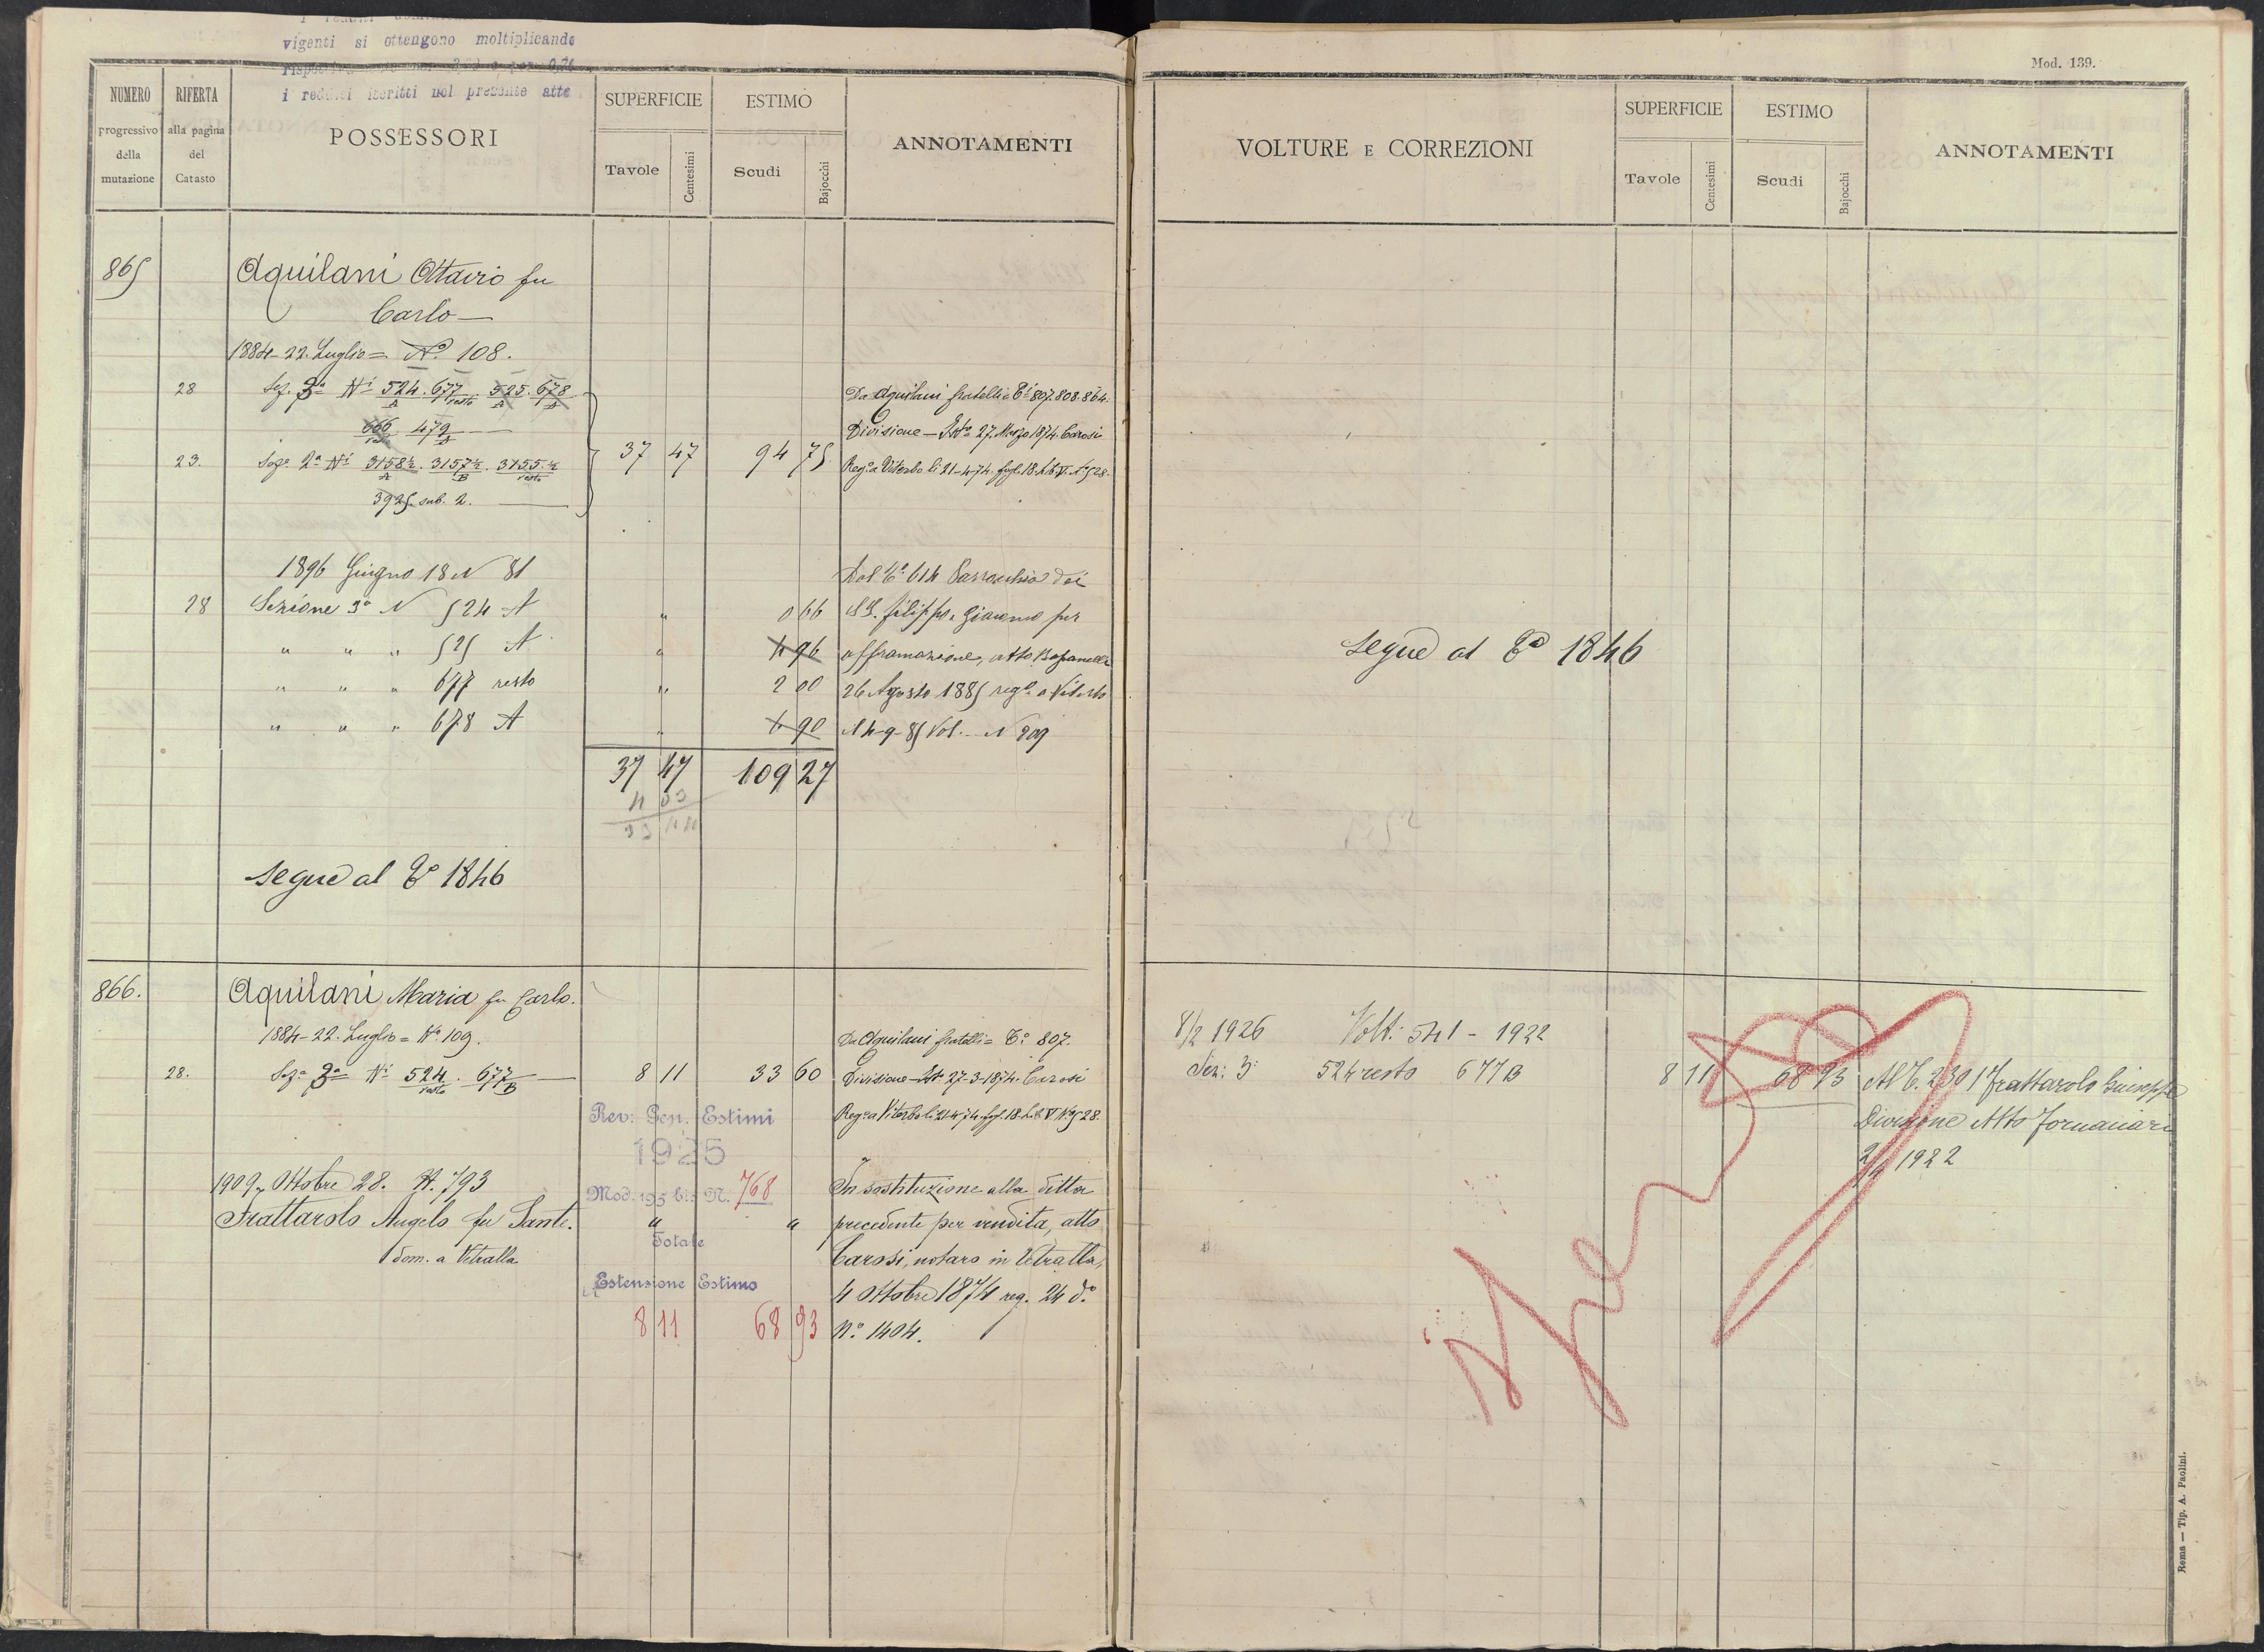 vigenti si ottengono moltiplicando
i redditi iscritti nel presente atto
NUMERO
progressivo
della
mutazione
RIFERTA
alla pagina
del
Catasto
POSSESSORI
SUPERFICIE
Tavole
Centesimi
ESTIMO
Scudi
Bajocchi
ANNOTAMENTI
865
Aquilani Ottavio fu
Carlo
1884-22. Luglio = N.º 108.
28 Sez. 3ª Nⁱ 524 A. 677 resto 525 A. 678 A
666 479
23. Sez.ª 2ª Nⁱ 3158½ A. 3157½ B. 3155.½ resto
3925 sub. 2.
37 47 94 75
Da Aquilani fratelli = Cⁱ 807.808.864.
Divisione - Istº 27. Marzo 1874. Carosi
Reg.º a Viterbo li 21-4-74. fogl. 18. Lib. VI. Nº 528.
1896 Giugno 18 N 81
28 Sezione 3ª N 524 A " 0 66
" " " 525 A " 4 96
" " " 677 resto " 2 00
" " " 678 A " 6 90
Dal Cº 614 Parrochia dei
SS. Filippo e Giacomo per
affrancazione, atto
26 Agosto 1885 reg.º a Viterbo
Vol. - N 209
37 47 109 27
4 03
33 44
segue al Cº 1846
866.
Aquilani Maria fu Carlo.
1884-22. Luglio = Nº 109.
28. Sez.ª 3ª Nⁱ 524 resto. 677 B
8 11 33 60
Da Aquilani fratelli = Cº 807.
Divisione - Istº 27-3-1874. Carosi
Reg.º a Viterbo li 21-4-74. fogl. 18. Lib. VI Nº 528.
Rev: Gen. Estimi
1925
Mod. 195 bis N. 768
1909, Ottobre 28. N. 793
Frattarolo Angelo fu Sante.
dom. a Vetralla
" "
Totale
Estensione Estimo
8 11 68 93
In sostituzione alla ditta
precedente per vendita, atto
Carosi, notaro in Vetralla,
4 Ottobre 1874 reg. 24 dº
Nº 1404.
Mod. 139.
VOLTURE E CORREZIONI
SUPERFICIE
Tavole
Centesimi
ESTIMO
Scudi
Bajocchi
ANNOTAMENTI
segue al Cº 1846
8/2 1926 Volt: 541 - 1922
Sez: 3ª 524 resto 677 B 8 11 68 93
Al C. 2301 Frattarolo Giuseppe
Divisione Atto Fornaciari
1922
Roma — Tip. A. Paolini.